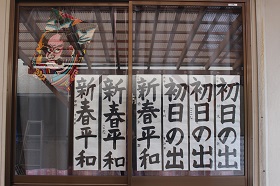 初日の出
初日の出
初日の出
新春平和
新春平和
新春平和